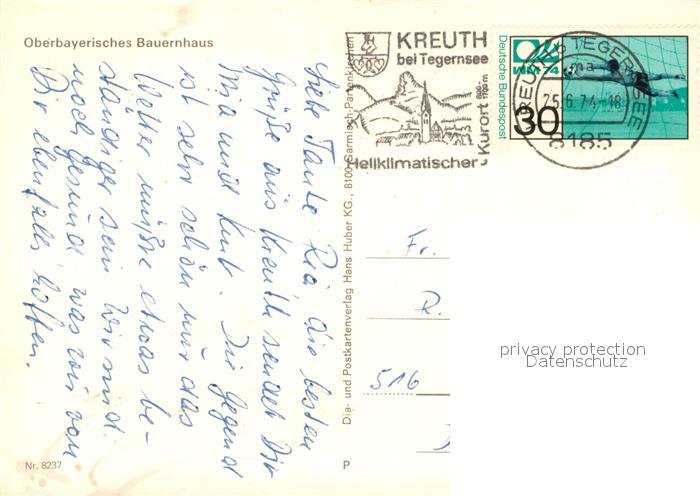 Oberbayerisches Bauernhaus
Liebe Tante Ria die besten
Grüße aus Kreuth sendet Dir
Mia und Kurt. Die Gegend
ist sehr schön nur das
Wetter müßte etwas be-
ständiger sein. Wir sind
noch gesund was wir von
Dir ebenfalls hoffen.
Nr. 8237
P
Dia- und Postkartenverlag Hans Huber KG., 8100 Garmisch-Partenkirchen
KREUTH
bei Tegernsee
Heilklimatischer
Kurort
800-
Deutsche Bundespost
WM 74
30
KREUTH TEGERNSEE
25.6.74-18
8185
Fr.
R.
516
privacy protection
Datenschutz